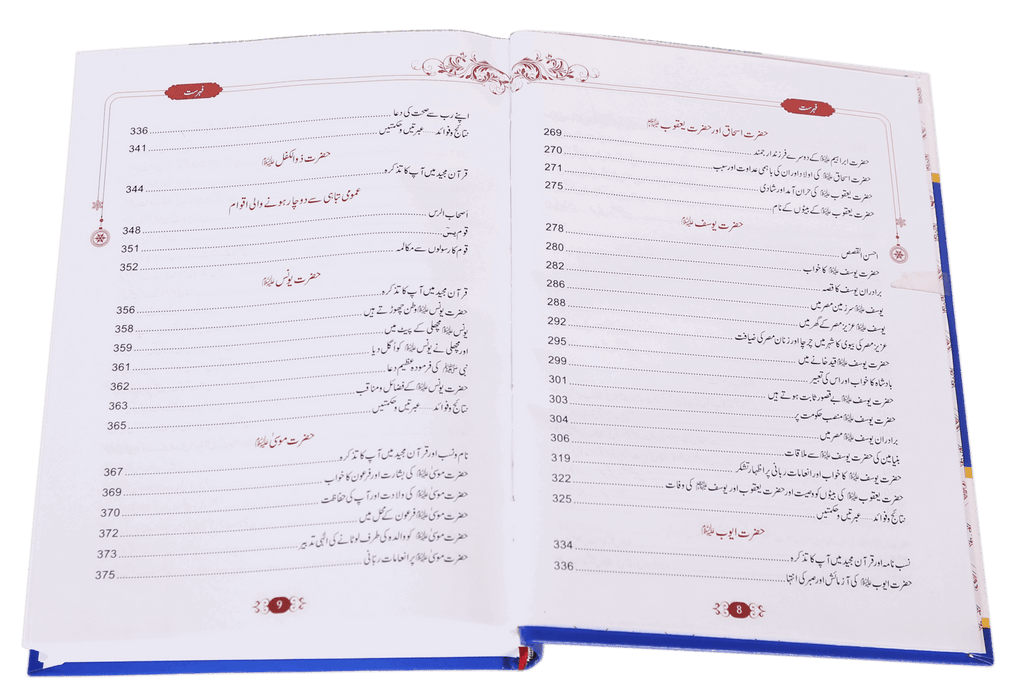 فہرست
حضرت اسحاق اور حضرت یعقوب علیہما السلام
حضرت ابراہیم علیہ السلام کے دوسرے فرزند ارجمند 269
حضرت اسحاق علیہ السلام کی اولاد اور ان کی باہمی عداوت اور سبب 270
حضرت یعقوب علیہ السلام کی حران آمد اور شادی 271
حضرت یعقوب علیہ السلام کے بیٹوں کے نام 275
حضرت یوسف علیہ السلام
احسن القصص 278
حضرت یوسف علیہ السلام کا خواب 280
برادران یوسف کا قصہ 282
یوسف علیہ السلام سرزمین مصر میں 286
یوسف علیہ السلام عزیز مصر کے گھر میں 288
عزیز مصر کی بیوی کا شہر میں چرچا اور زنان مصر کی ضیافت 292
حضرت یوسف علیہ السلام قید خانے میں 295
بادشاہ کا خواب اور اس کی تعبیر 299
حضرت یوسف علیہ السلام بے قصور ثابت ہوتے ہیں 301
حضرت یوسف علیہ السلام منصب حکومت پر 303
برادران یوسف علیہ السلام مصر میں 304
بنیامین کی حضرت یوسف علیہ السلام سے ملاقات 306
حضرت یوسف علیہ السلام کا خواب اور انعامات ربانی پر اظہار تشکر 319
حضرت یعقوب علیہ السلام کی بیٹوں کو وصیت اور حضرت یعقوب اور یوسف علیہما السلام کی وفات 322
نتائج و فوائد ..... عبرتیں و حکمتیں 325
حضرت ایوب علیہ السلام
نسب نامہ اور قرآن مجید میں آپ کا تذکرہ 334
حضرت ایوب علیہ السلام کی آزمائش اور صبر کی انتہا 336
8
فہرست
اپنے رب سے صحت کی دعا 336
نتائج و فوائد ..... عبرتیں و حکمتیں 341
حضرت ذوالکفل علیہ السلام
قرآن مجید میں آپ کا تذکرہ 344
عمومی تباہی سے دوچار ہونے والی اقوام
اصحاب الرس 348
قوم یٰسٓ 351
قوم کا رسولوں سے مکالمہ 352
حضرت یونس علیہ السلام
قرآن مجید میں آپ کا تذکرہ 356
حضرت یونس علیہ السلام وطن چھوڑتے ہیں 358
یونس علیہ السلام مچھلی کے پیٹ میں 359
اور مچھلی نے یونس علیہ السلام کو اگل دیا 361
نبی ﷺ کی فرمودہ عظیم دعا 362
حضرت یونس علیہ السلام کے فضائل و مناقب 363
نتائج و فوائد ..... عبرتیں و حکمتیں 365
حضرت موسیٰ علیہ السلام
نام و نسب اور قرآن مجید میں آپ کا تذکرہ 367
حضرت موسیٰ علیہ السلام کی بشارت اور فرعون کا خواب 369
حضرت موسیٰ علیہ السلام کی ولادت اور آپ کی حفاظت 370
حضرت موسیٰ علیہ السلام فرعون کے محل میں 372
حضرت موسیٰ علیہ السلام کو والدہ کی طرف لوٹانے کی الٰہی تدبیر 373
حضرت موسیٰ علیہ السلام پر انعامات ربّانی 375
9